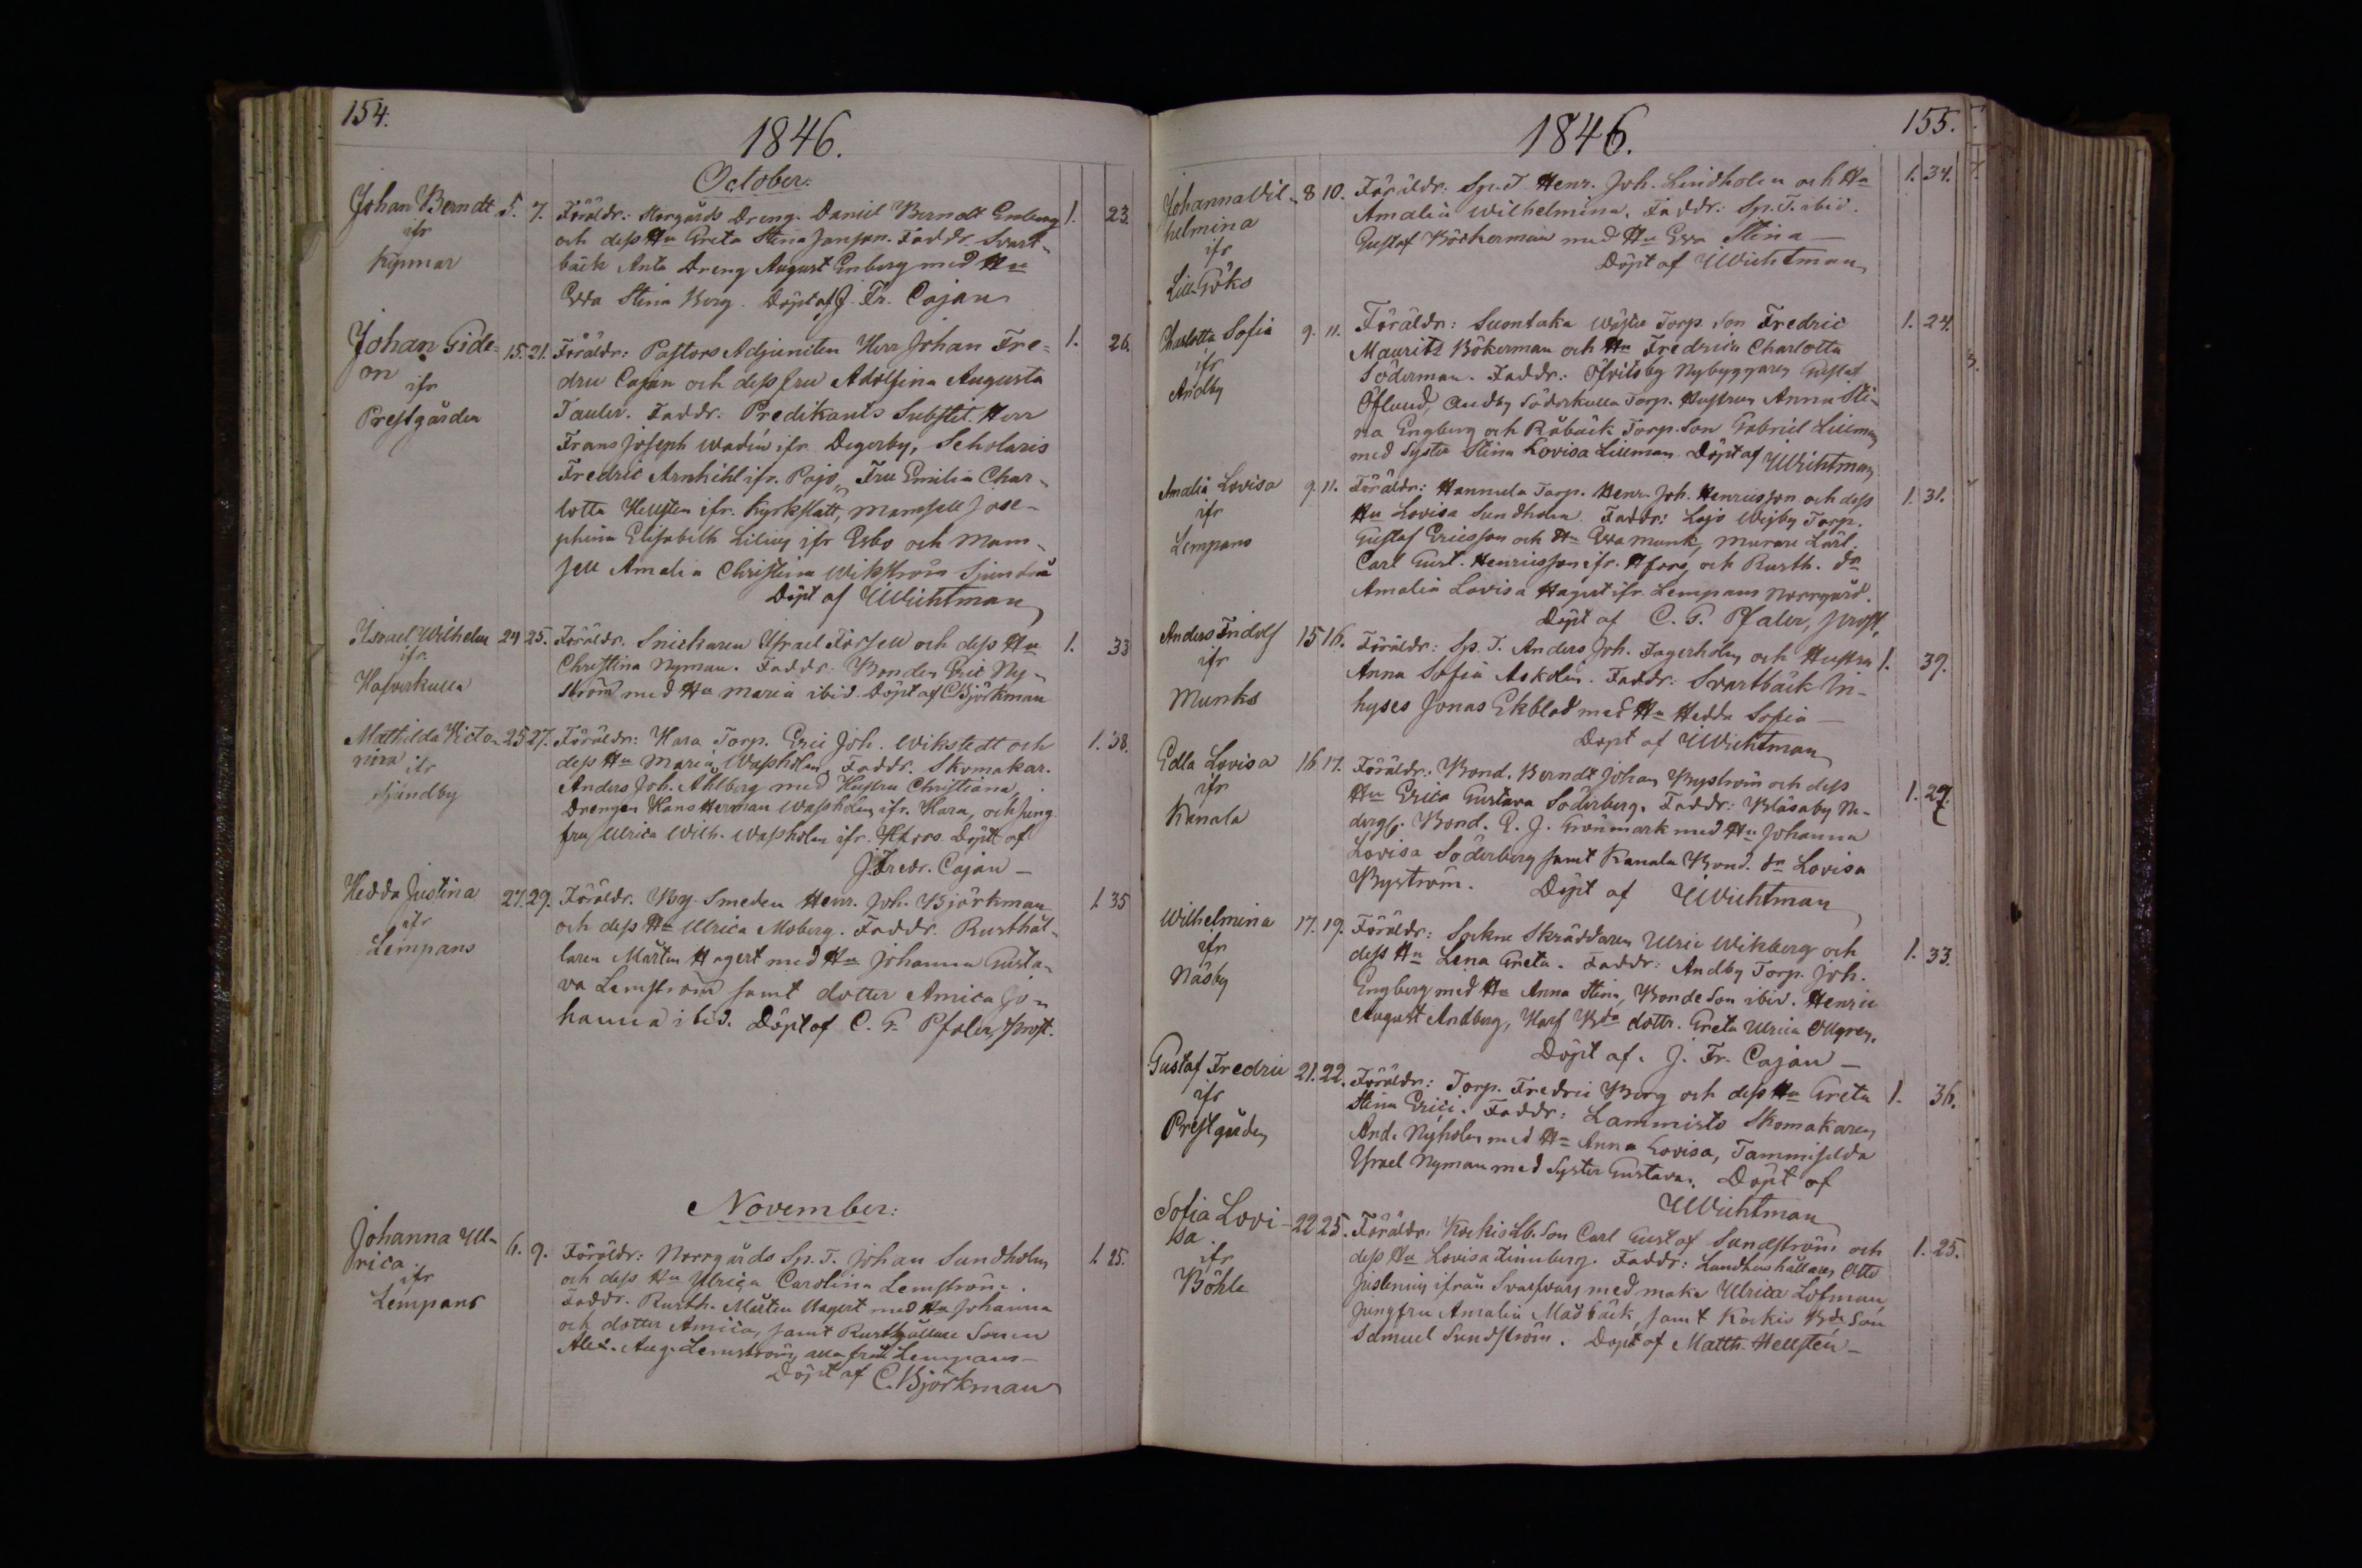 154.
1846.
October.
Johan Berndt 5. 7. Föräldr: Storgårds Dreng. Daniel Berndt Enberg 1. 23.
ifr och dess Hu Greta Stina Janson. Faddr. Svart-
Kypmar bäck Anta Dreng August Enberg med Hu
Ewa Stina Berg. Döpt af J. Fr. Cajan
Johan Gide- 15. 21. Föräldr: Pastors Adjuncten Herr Johan Fre- 1. 26.
on ifr dric Cajan och dess fru Adolfina Augusta
Prestgården Tauler. Faddr: Predikants Substit. Herr
Frans Joseph Wadén ifr Degerby, Scholaris
Fredric Arnkihl ifr. Pojo, Fru Emilia Char-
lotta Hellsten ifr. Kyrkslätt, Mamsell Jose-
phina Elisabeth Lilius ifr Esbo och Mam-
sell Amalia Christina Wikström Sjundeå
Döpt af UWichtman
Israel Wilhelm 24 25. Föräldr. Snickaren Israel Forsell och dess Hu 1. 33
ifr Christina Nyman. Faddr: Bonden Eric Ny-
Hafverkulla ström med Hu Maria ibid. Döpt af CBjörkman
Mathilda Victo- 25 27. Föräldr: Hara Torp. Eric Joh. Wikstedt och 1. 38.
rina ifr dess Hu Maria Wassholm. Faddr. Skomakar.
Sjundby Anders Joh. Ahlberg med Hustru Christiana,
Drengen Hans Herman Wassholm ifr. Hara, och Jung
fru Ulrica Wilh. Wassholm ifr. Hfors. Döpt af
J. Fredr. Cajan —
Hedda Justina 27. 29. Föräldr. By Smeden Henr. Joh. Björkman 1. 35
ifr och dess Hu Ulrica Moberg. Faddr. Rusthål-
Lempans laren Mårten Hagert med Hu Johanna Gusta-
va Lemström samt dotter Amica Jo-
hanna ibid. Döpt af C. G. Pfaler, Prost.
November:
Johanna Ul- 6. 9. Föräldr: Norrgårds Sp. T. Johan Sundholm 1. 25.
rica. och dess Hu Ulrica Carolina Lemström.
ifr Faddr. Rusth. Mårten Hagert med Hu Johanna
Lempans och dotter Amica, samt Rusthållare Sonen
Alex. Aug. Lemström, alla från Lempans —
Döpt af C. Björkman
1846. 155.
Johanna Wil- 8 10. Föräldr: Sp. T. Henr. Joh. Lindholm och Hu 1. 34.
helmina Amalia Wilhelmina. Faddr: Sp. T. ibid.
ifr Gustaf Böckerman med Hu Ewa Stina —
Lill Göks Döpt af UWichtman
Charlotta Sofia 9. 11. Föräldr: Suontaka Torp. Son Fredric 1. 24.
ifr Maurits Bökerman och Hu Fredrica Charlotta
Andby Söderman. Faddr: Öfvitsby Nybyggaren Gustaf
Öflund, Andby Söderkulla Torp. Hustrun Anna Sti-
na Engberg och Råbäck Torp. Son Gabriel Lillman
med Syster Stina Lovisa Lillman. Döpt af UWichtman
Amalia Lovisa 9. 11. Föräldr: Hannula Torp. Henr. Joh. Henricsson och dess 1. 31.
ifr Hu Lovisa Sundholm. Faddr: Lojo Wejby Torp.
Lempans Gustaf Ericsson och Hu Ewa Munk, Murare Lärl.
Carl Gust. Henricsson ifr. Hfors, och Rusth. dr
Amalia Lovisa Hagert ifr Lempans Norrgård.
Döpt af C. G. Pfaler, prost,
Anders Fridolf 15 16. Föräldr: Sp. T. Anders Joh. Fagerholm och Hustru 1. 39.
ifr Anna Sofia Askolin. Faddr: Svartbäck In-
Munks hyses Jonas Ekblad med Hu Hedda Sofia —
Döpt af UWichtman
Edla Lovisa 16 17. Föräldr: Bond. Berndt Johan Byström och dess 1. 29.
ifr Hu Erica Gustava Söderberg. Faddr: Blåsaby Ne-
Kanala derg. Bond. E. J. Grönmark med Hu Johanna
Lovisa Söderberg samt Kanala Bond. dr Lovisa
Byström. Döpt af UWichtman
Wilhelmina 17. 19. Föräldr: Sockne Skräddaren Ulric Wikberg och 1. 33.
ifr dess Hu Lena Greta. Faddr: Andby Torp. Joh.
Näsby Engberg med Hu Anna Stina, Bonde Son ibid. Henric
August Andberg, Harf Bda dottr. Greta Ulrica Ollgren.
Döpt af. J. Fr. Cajan —
Gustaf Fredric 21. 22. Föräldr: Torp. Fredric Borg och dess Hu Greta 1. 36.
ifr Stina Erici. Faddr: Lammisto Skomakaren
Prestgården And. Nyholm med Hu Anna Lovisa, Tammisilda
Israel Nyman med Syster Gustava. Döpt af
UWichtman
Sofia Lovi- 22 25. Föräldr. Kockis Lb. Son Carl Gustaf Sundström och 1. 25.
sa dess Hu Lovisa Linnberg. Faddr: Landhushållaren Otto
ifr Juslenius ifrån Svartvarf med maka Ulrica Lofman
Böhle Jungfru Amalia Madbäck, samt Kockis Bde Son
Samuel Sundström. Döpt af Matth. Hellstén —